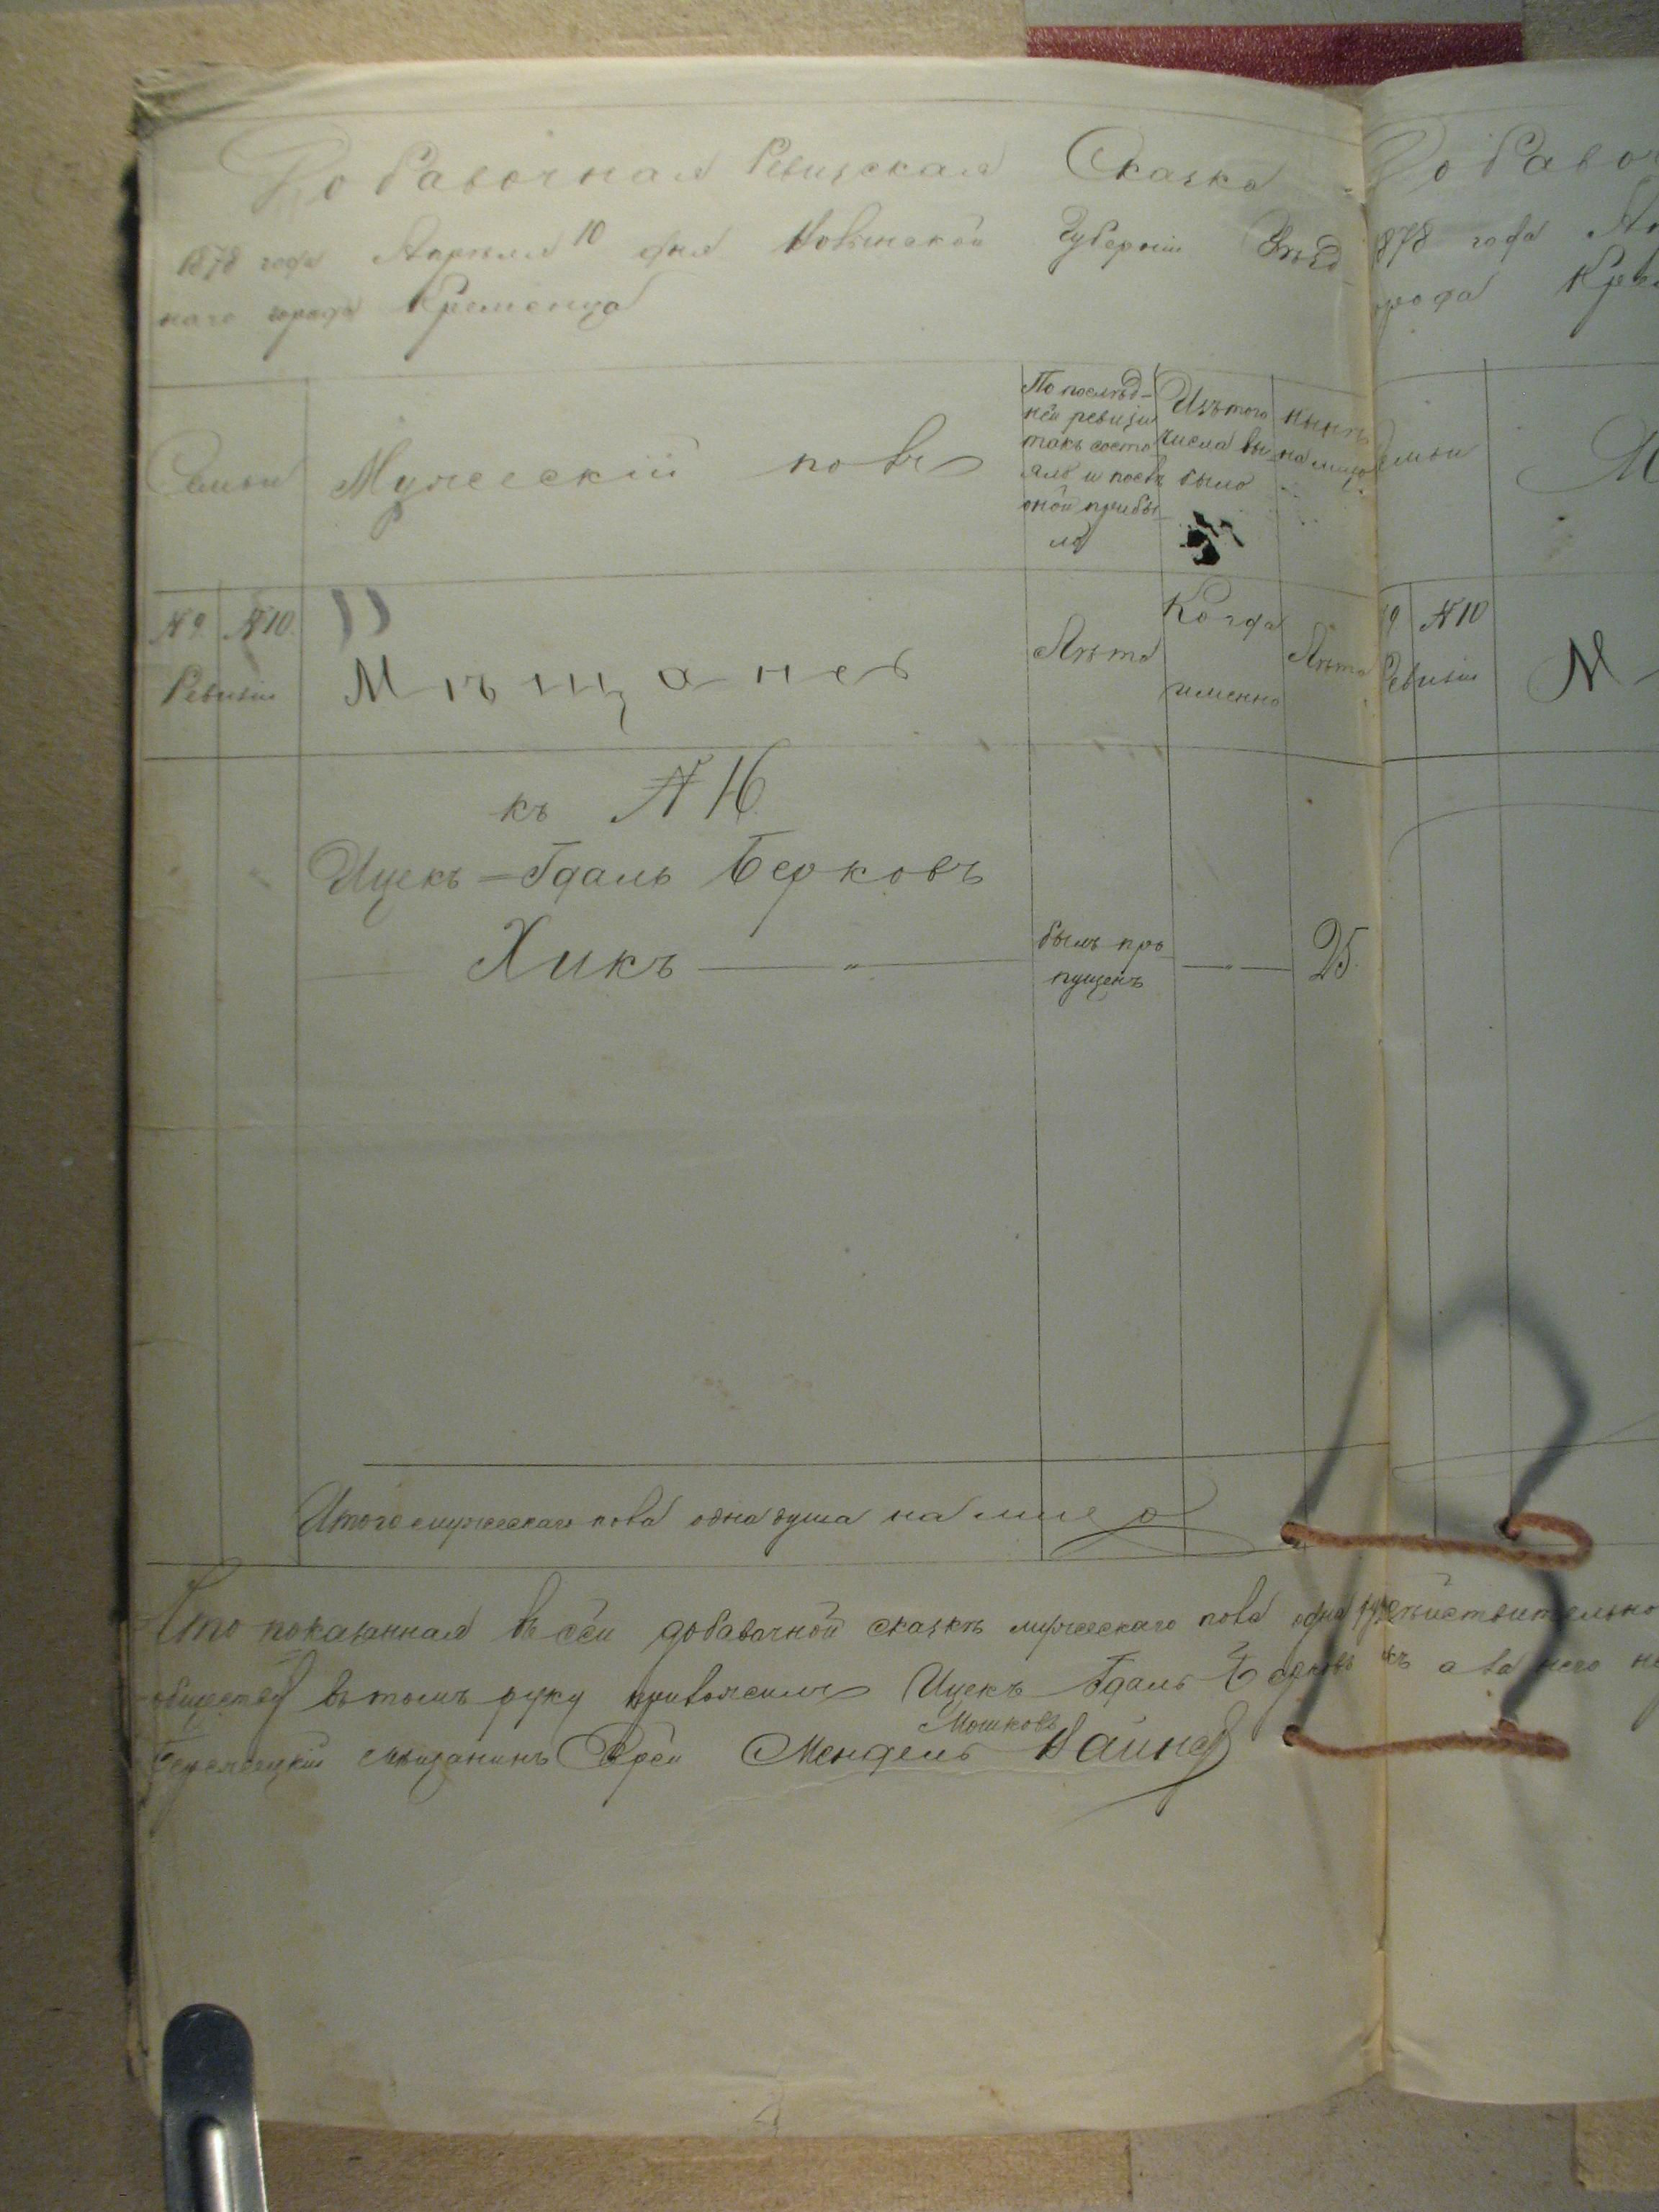 Добавочная Ревизская Сказка
1878 года Апреля 10 дня Волынской Губернiи Уѣзд
наго города Кременца
Семьи
Мужескiй полъ
По послѣд-
ней ревизiи
такъ состо
яло и послѣ
оной прибы
ло
Изъ того
числа вы
было
нынѣ
на лицо
№ 9. № 10.
Ревизiи
Мѣщане
Лѣта
Когда
именно
Лѣта
къ № 16.
Ицекъ-Гдаль Берковъ
Хикъ — „ —
былъ про
пущенъ
— „ —
25.
Итого мужескаго пола одна душа на лицо
Что показанная въ сей добавочной сказкѣ мужескаго пола одна действительно
въ томъ руку приложилъ Ицекъ Гдаль Берковъ а за него не
мещанинъ Еврей Мендель Мошковъ Вайнер
Добавоч
1878 года Ап
города Креме
семьи
М
9 № 10
Ревизiи
М